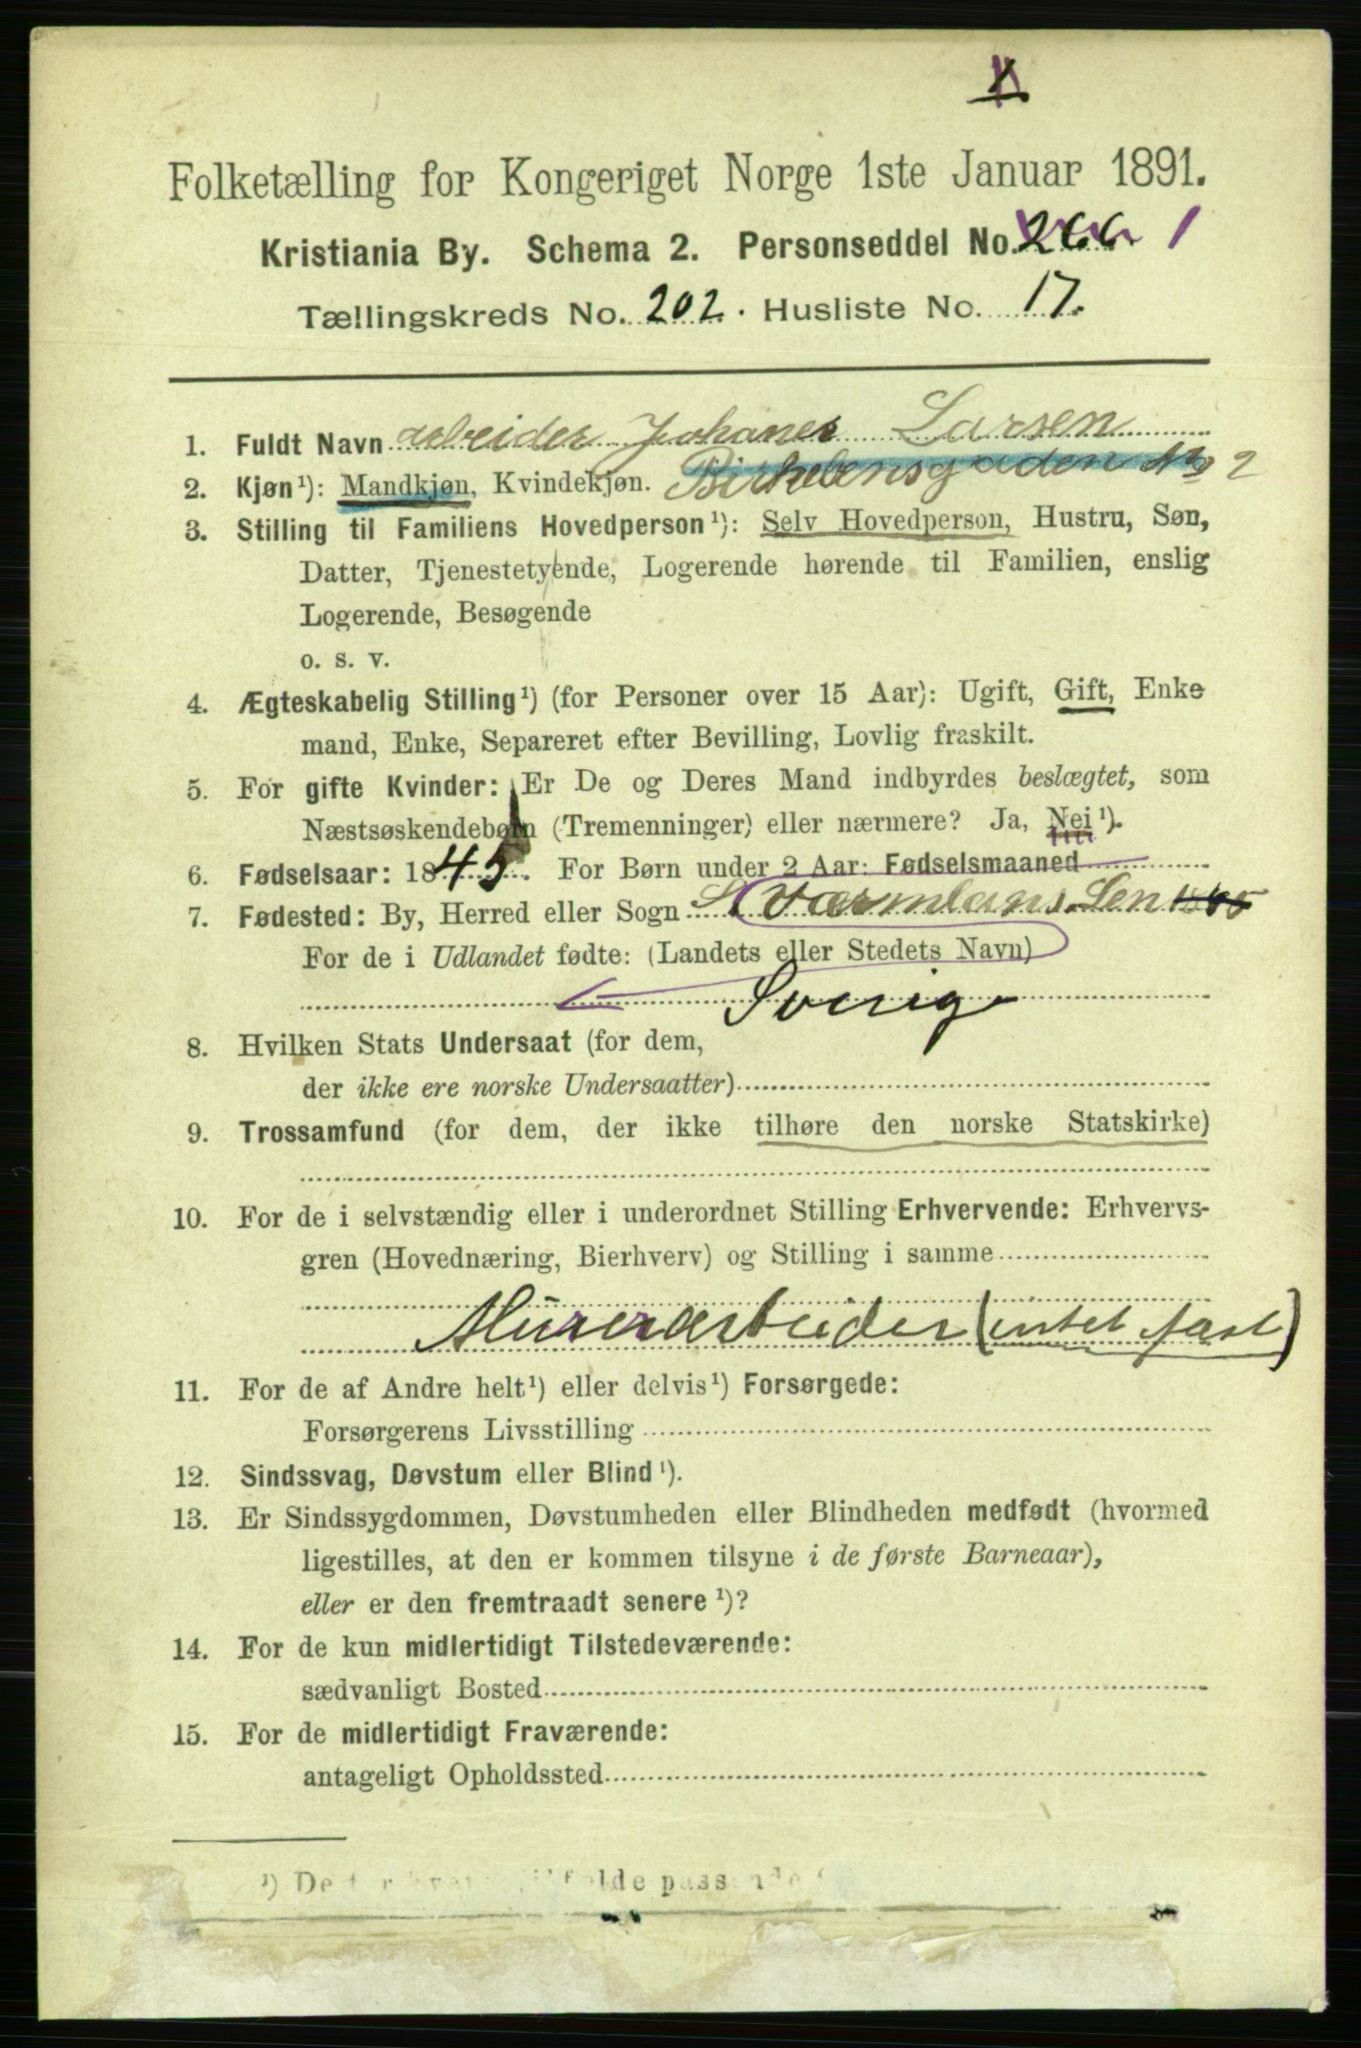 Folketælling for Kongeriget Norge 1ste Januar 1891.
Kristiania By. Schema 2. Personseddel No. 266 1
Tællingskreds No. 202. Husliste No. 17.
1. Fuldt Navn arbeider Johanes Larsen
Birkebensgaden No 2
2. Kjøn¹): Mandkjøn, Kvindekjøn.
3. Stilling til Familiens Hovedperson¹): Selv Hovedperson, Hustru, Søn,
Datter, Tjenestetyende, Logerende hørende til Familien, enslig
Logerende, Besøgende
o. s. v.
4. Ægteskabelig Stilling¹) (for Personer over 15 Aar): Ugift, Gift, Enke
mand, Enke, Separeret efter Bevilling, Lovlig fraskilt.
5. For gifte Kvinder: Er De og Deres Mand indbyrdes beslægtet, som
Næstsøskendebørn (Tremenninger) eller nærmere? Ja, Nei¹).
6. Fødselsaar: 1845. For Børn under 2 Aar: Fødselsmaaned
7. Fødested: By, Herred eller Sogn Værmlans Len
For de i Udlandet fødte: (Landets eller Stedets Navn)
Sverig
8. Hvilken Stats Undersaat (for dem,
der ikke ere norske Undersaatter)
9. Trossamfund (for dem, der ikke tilhøre den norske Statskirke)
10. For de i selvstændig eller i underordnet Stilling Erhvervende: Erhvervs-
gren (Hovednæring, Bierhverv) og Stilling i samme
Murerarbeider (intet fast)
11. For de af Andre helt¹) eller delvis¹) Forsørgede:
Forsørgerens Livsstilling
12. Sindssvag, Døvstum eller Blind¹).
13. Er Sindssygdommen, Døvstumheden eller Blindheden medfødt (hvormed
ligestilles, at den er kommen tilsyne i de første Barneaar),
eller er den fremtraadt senere¹)?
14. For de kun midlertidigt Tilstedeværende:
sædvanligt Bosted
15. For de midlertidigt Fraværende:
antageligt Opholdssted